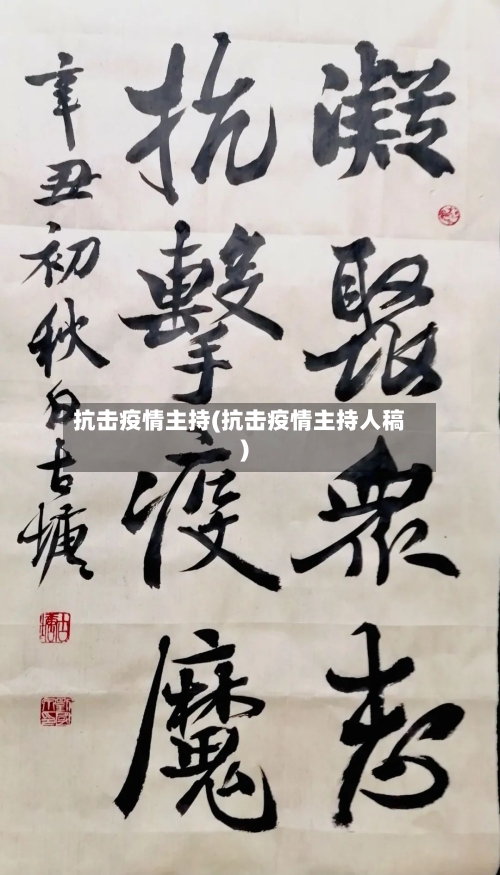 凝聚衆志
抗擊疫魔
辛丑初秋
抗击疫情主持(抗击疫情主持人稿
)